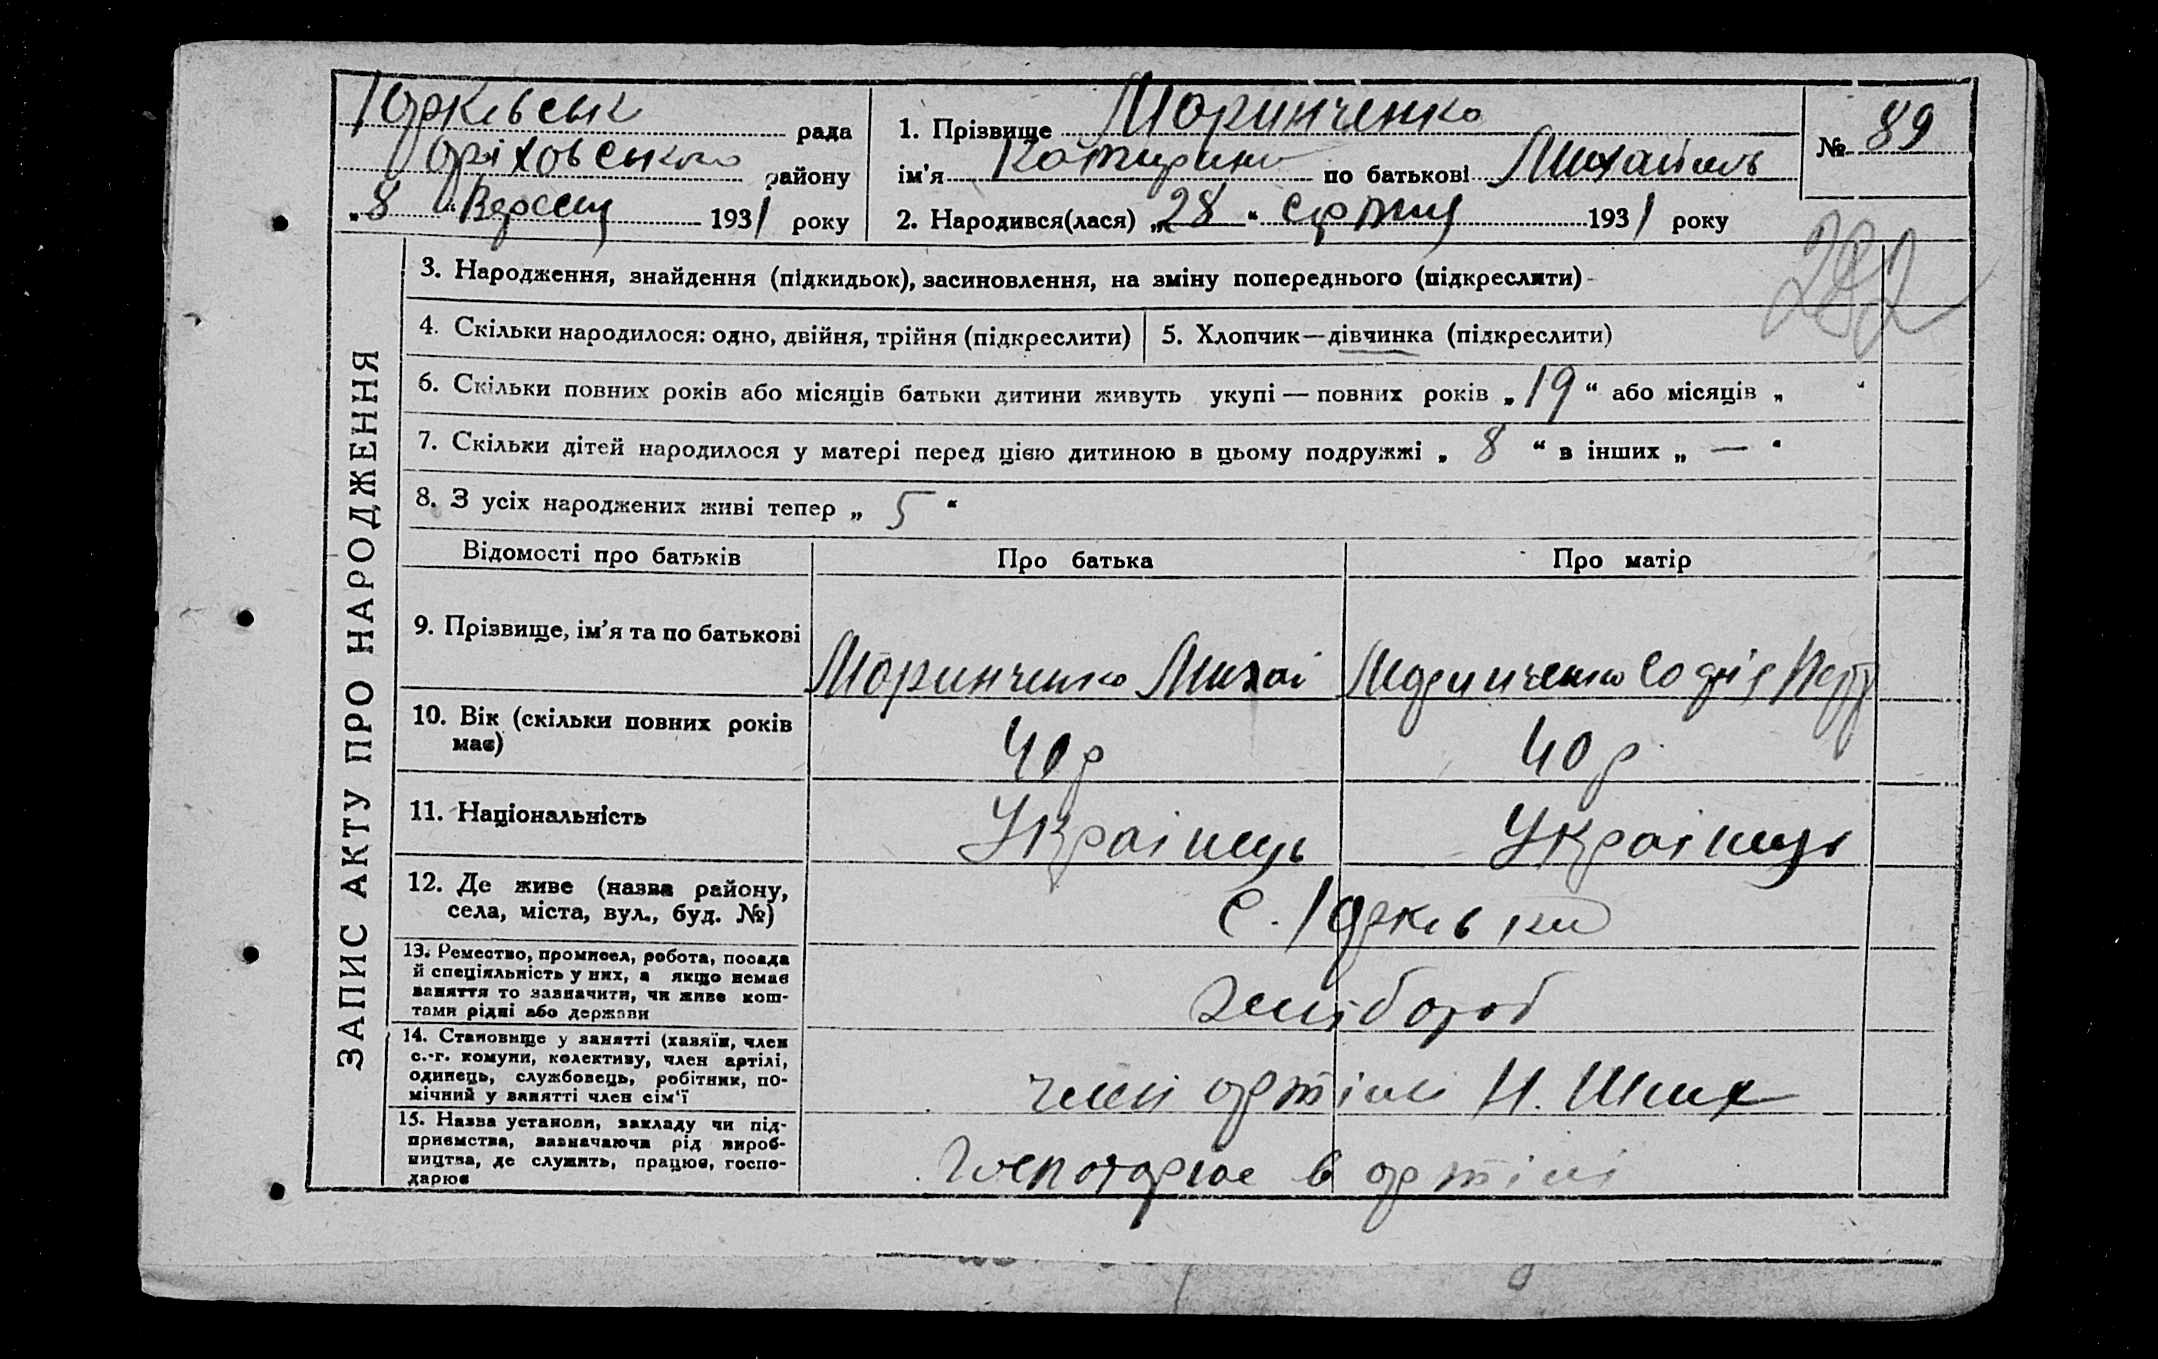 Юрківськ рада
Оріховського району
„8“ Вересня 1931 року
1. Прізвище Моринченко
ім'я Катерина по батькові Михайлів
2. Народився(лася) „28“ серпня 1931 року
№ 89
282
ЗАПИС АКТУ ПРО НАРОДЖЕННЯ
3. Народження, знайдення (підкидьок), засиновлення, на зміну попереднього (підкреслити)
4. Скільки народилося: одно, двійня, трійня (підкреслити)
5. Хлопчик—дівчинка (підкреслити)
6. Скільки повних років або місяців батьки дитини живуть укупі — повних років „19“ або місяців „ “
7. Скільки дітей народилося у матері перед цією дитиною в цьому подружжі „8“ в інших „—“
8. З усіх народжених живі тепер „5“
Відомості про батьків
Про батька
Про матір
9. Прізвище, ім'я та по батькові
Моринченко Михай
Моринченко Софія
10. Вік (скільки повних років
має)
40 р
40 р
11. Національність
Українець
Українець
12. Де живе (назва району,
села, міста, вул., буд. №)
с. Юрківка
13. Ремество, промисел, робота, посада
й спеціяльність у них, а якщо немає
заняття то зазначити, чи живе кош-
тами рідні або держави
хлібороб
14. Становище у занятті (хазяїн, член
с.-г. комуни, колективу, член артілі,
одинець, службовець, робітник, по-
мічний у занятті член сім'ї
член артілі Н. Шлях
15. Назва установи, закладу чи під-
приємства, зазначаючи рід вироб-
ництва, де служить, працює, госпо-
дарює
Господарює в артілі